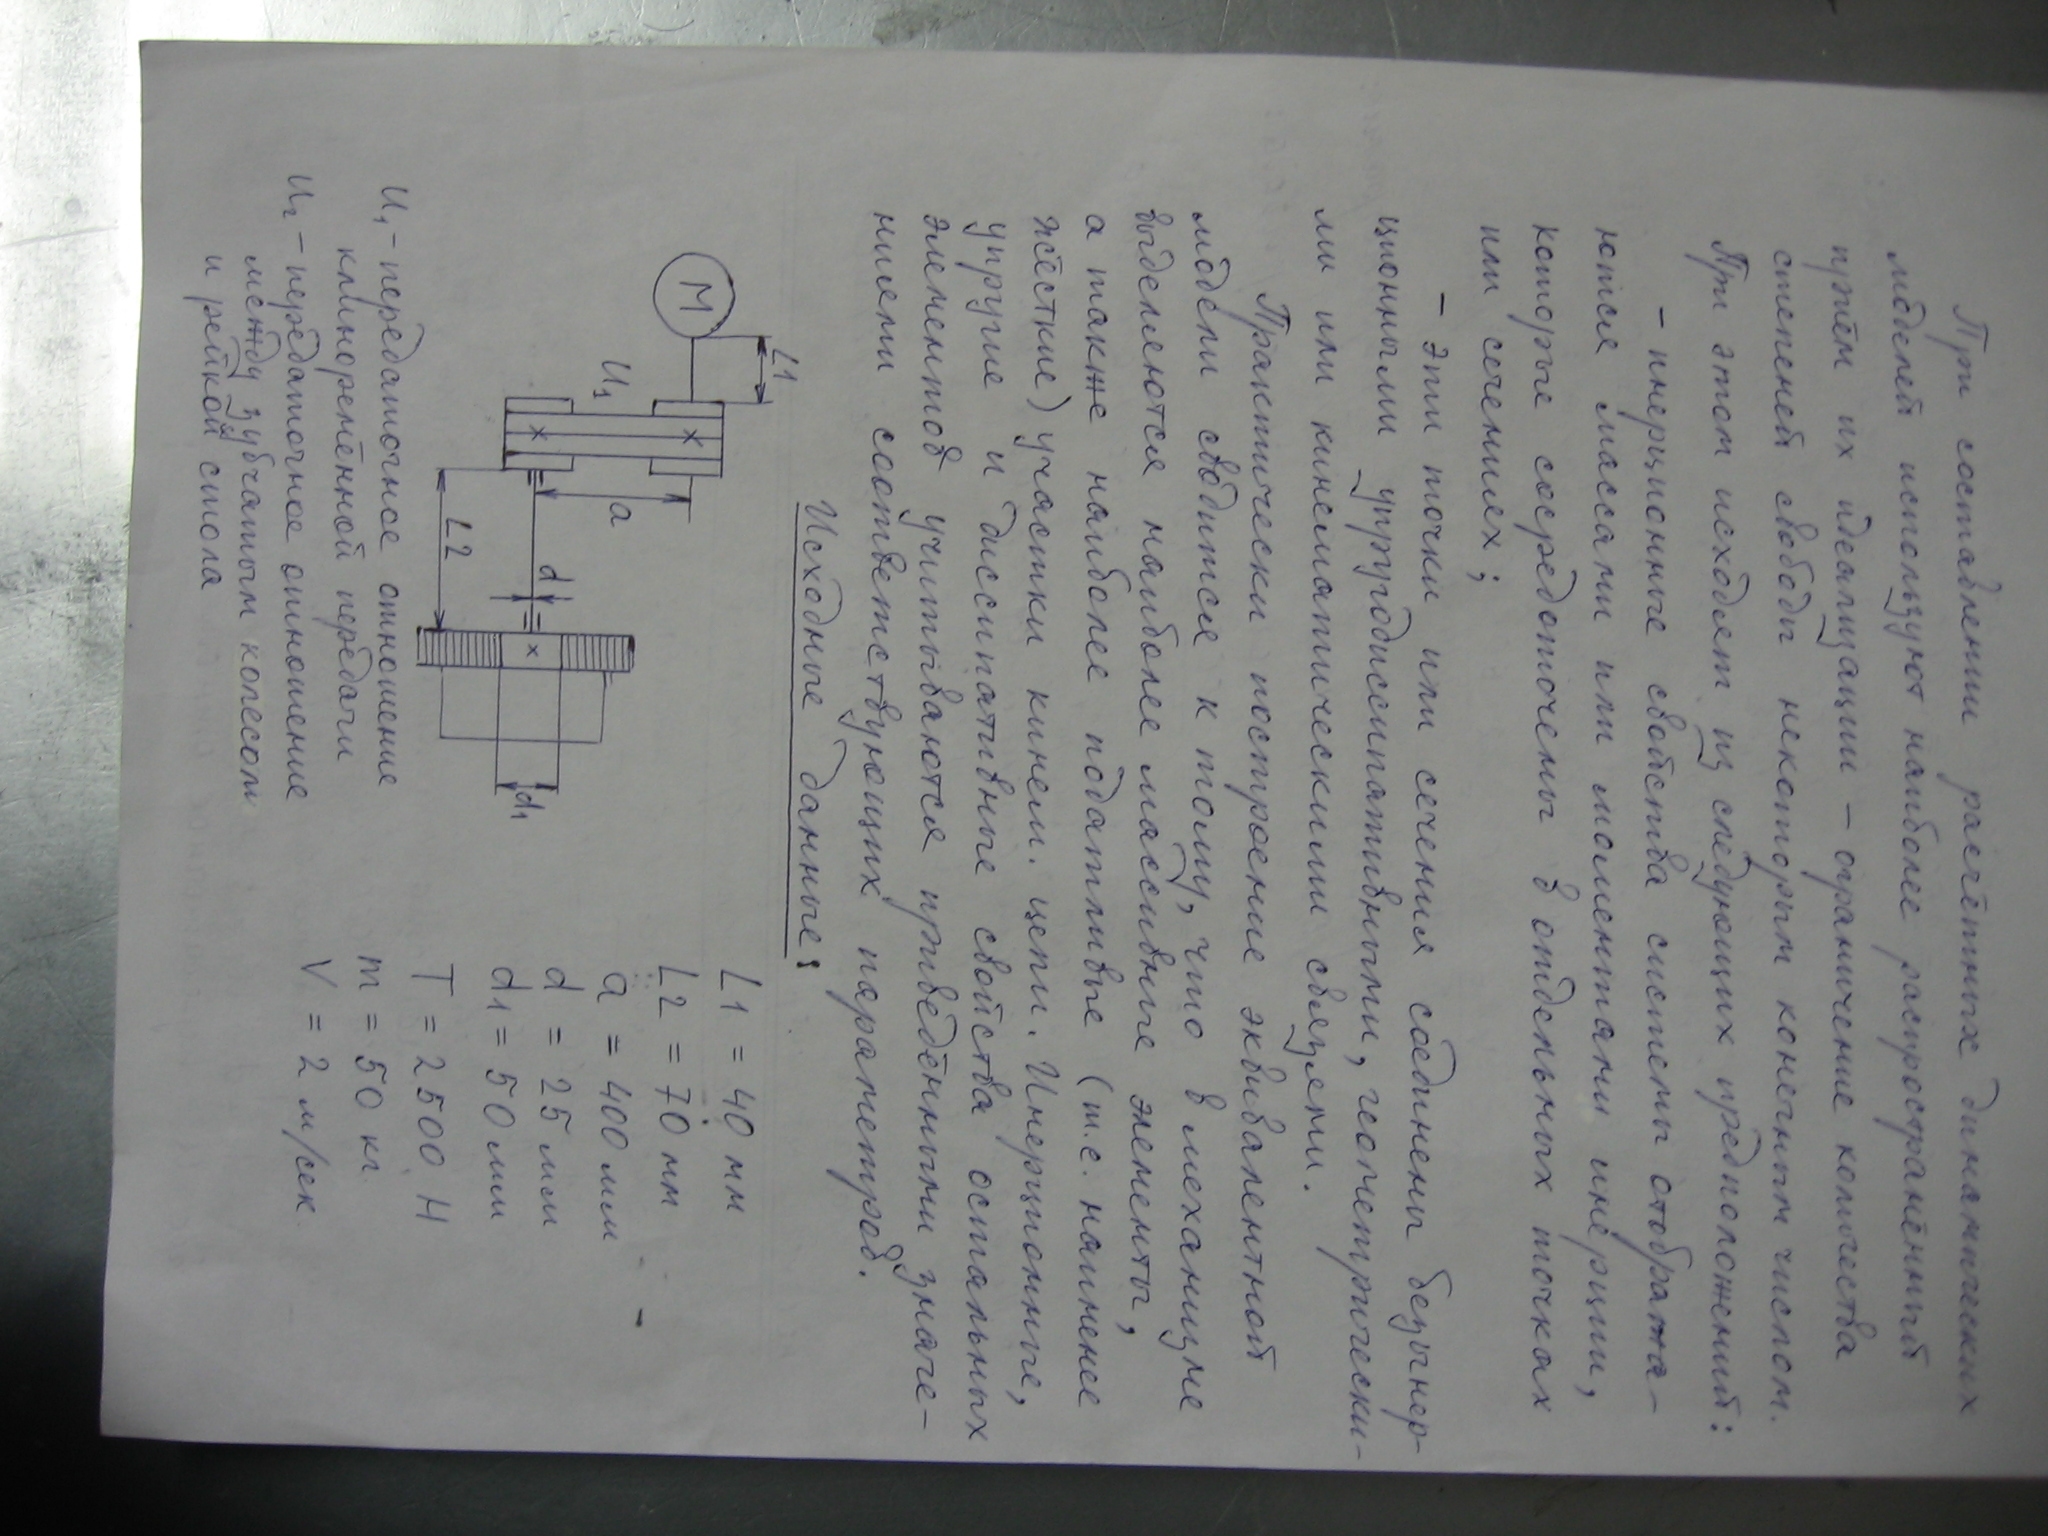 При составлении расчётных динамических
моделей используют наиболее распространённый
приём их идеализации – ограничение количества
степеней свободы некоторым конечным числом.
При этом исходят из следующих предположений:
– инерционные свойства системы отобража-
ются массами или моментами инерции,
которые сосредоточены в отдельных точках
или сечениях;
– эти точки или сечения соединены безынер-
ционными упругодиссипативными, геометрически-
ми или кинематическими связями.
Практически построение эквивалентной
модели сводится к тому, что в механизме
выделяются наиболее массивные элементы,
а также наиболее податливые (т.е. наименее
жёсткие) участки кинем. цепи. Инерционные,
упругие и диссипативные свойства остальных
элементов учитываются приведёнными значе-
ниями соответствующих параметров.
Исходные данные:
L1
M
U1
a
L2
d
d1
L1 = 40 мм
L2 = 70 мм
a = 400 мм
d = 25 мм
d1 = 50 мм
T = 2500 Н
m = 50 кг
V = 2 м/сек
U1 – передаточное отношение
клиноремённой передачи
U2 – передаточное отношение
между зубчатым колесом
и рейкой стола